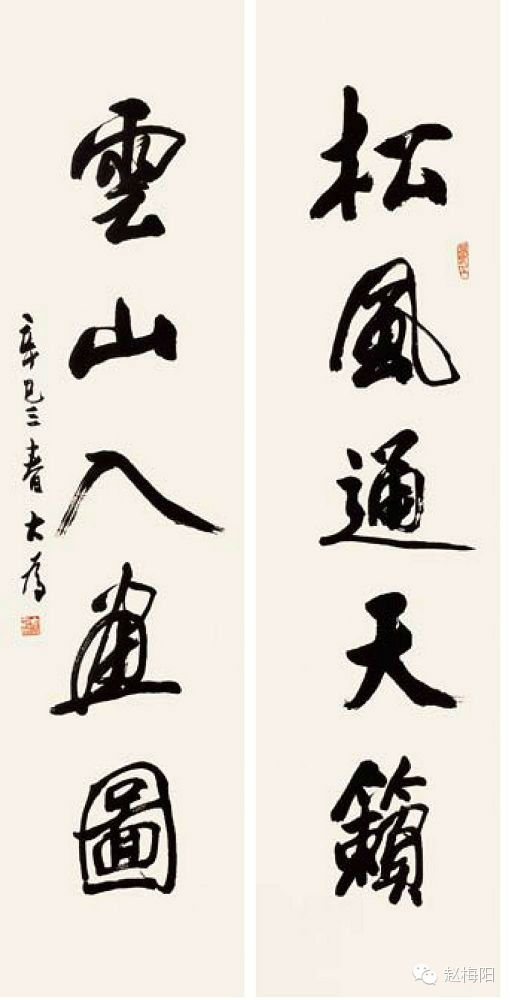 松風通天籟
雲山入畫圖
辛巳三春大為
赵梅阳